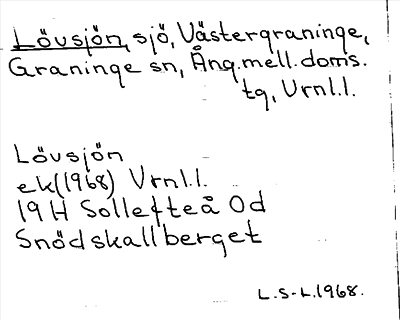 Lövsjön, sjö, Västergraninge,
Graninge sn, Ång.mell.doms.
tg, Vrnl.l.
Lövsjön
ek(1968) Vrnl.l.
19 H Sollefteå Od
Snödskallberget
L.S-L.1968.